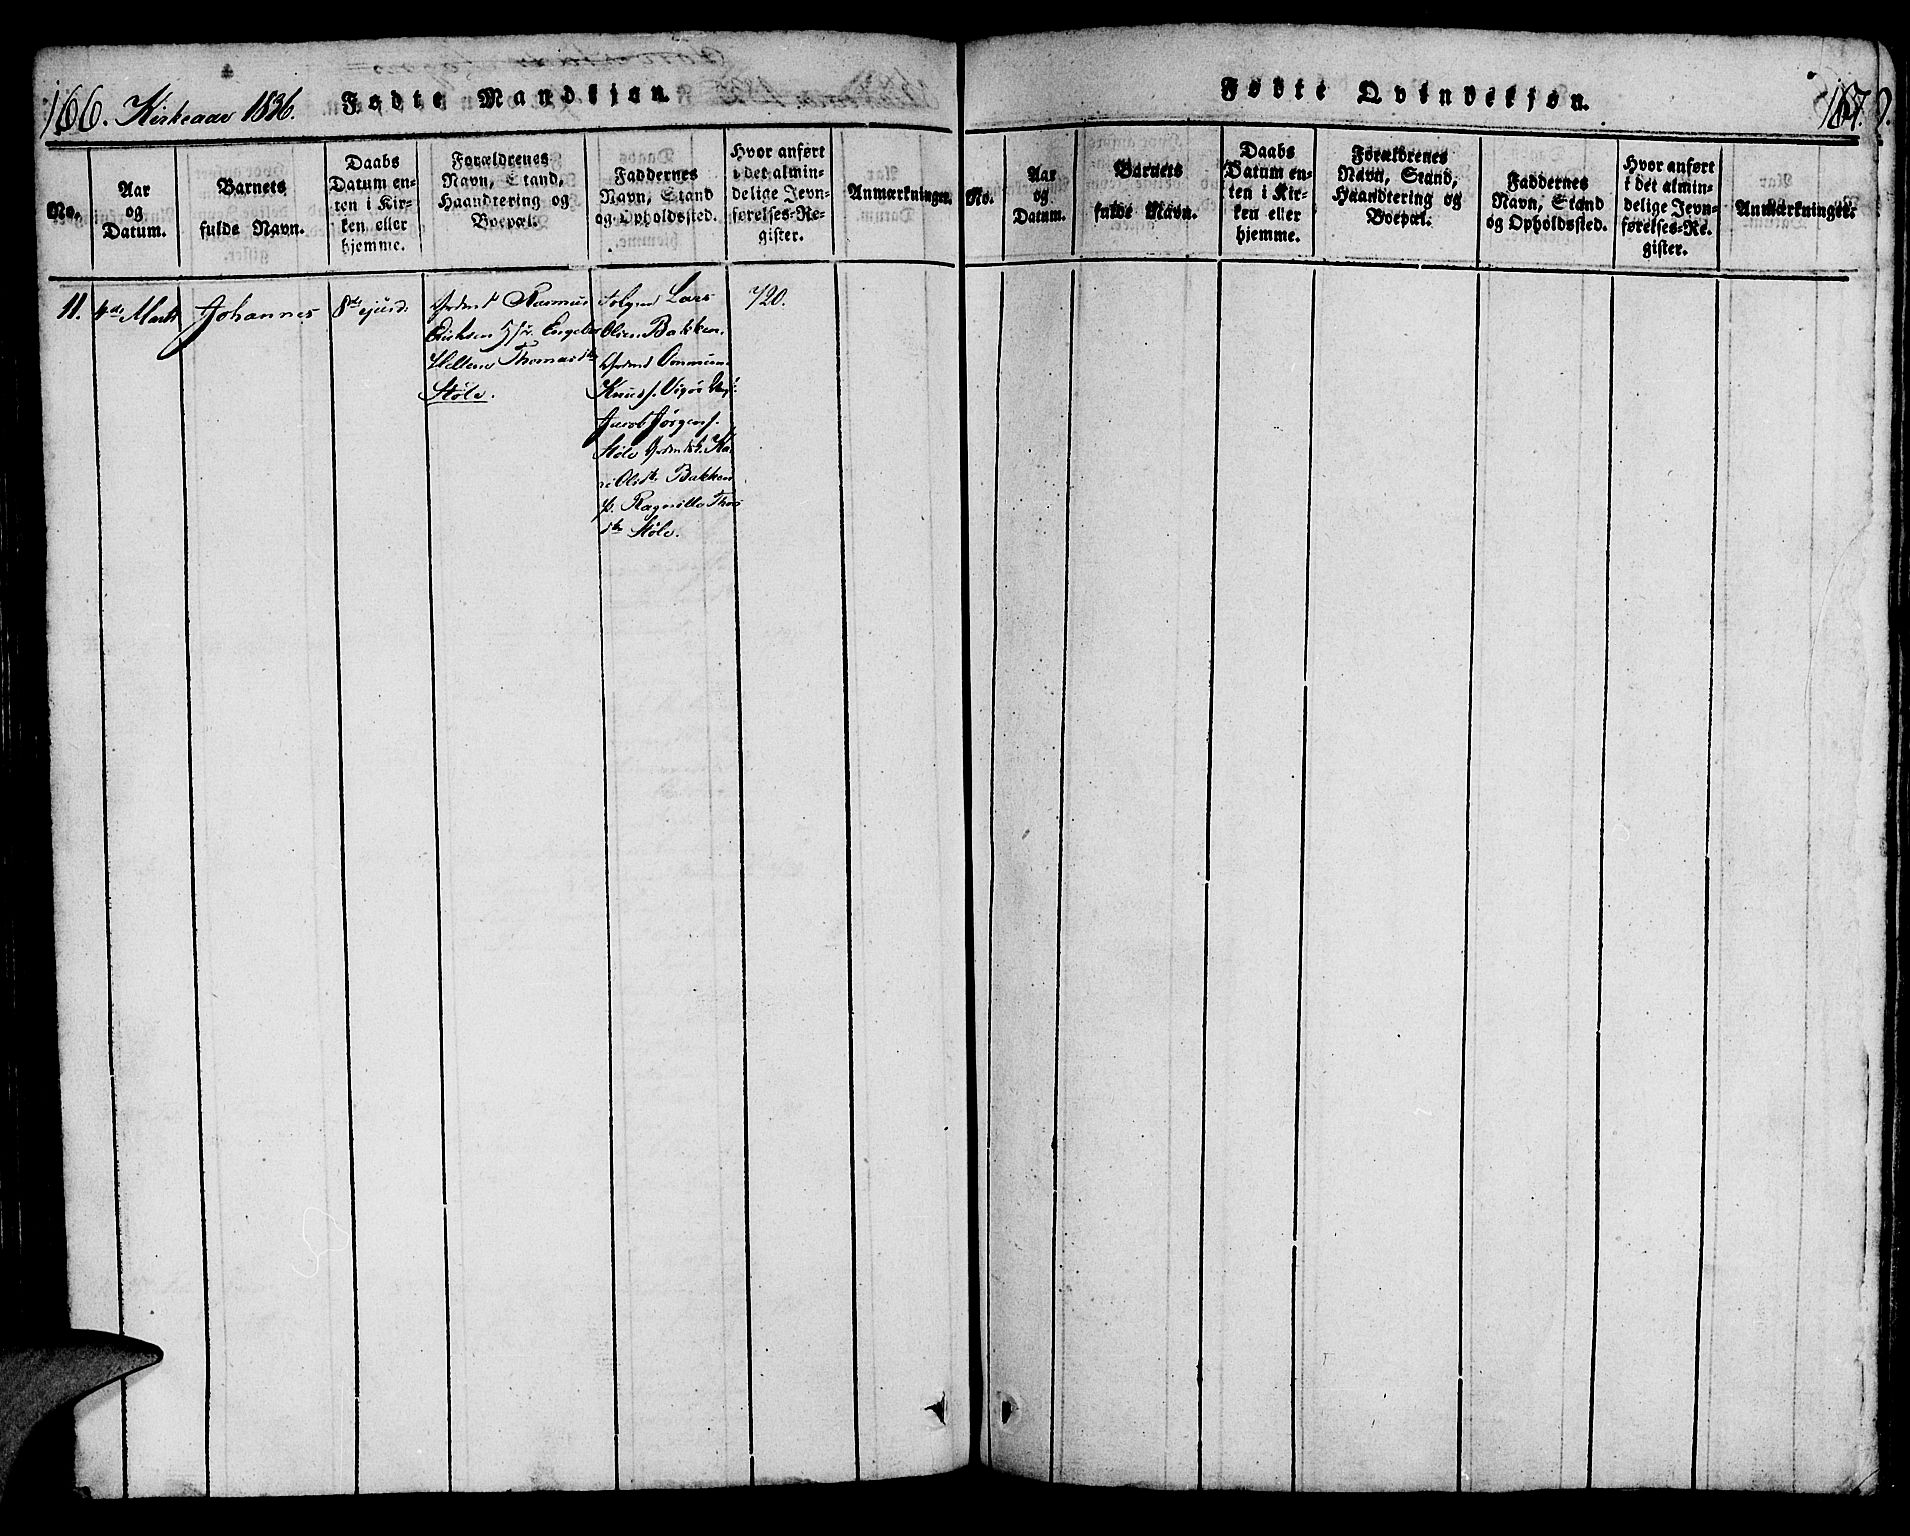 166. Kirkeaar 1826. Fødte Mandkjøn.
No.
Aar
og
Datum.
Barnets
fulde Navn.
Daabs
Datum en-
ten i Kir-
ken eller
hjemme.
Forældrenes
Navn, Stand,
Haandtering og
Boepæl.
Faddernes
Navn, Stand
og Opholdssted.
Hvor anført
i det almin-
delige Jevn-
førelses-Re-
gister.
Anmærkninger.
11.
4de Marts
Johannes
8de ejusd.
Rasmus
Thomasdtr
Støle.
Lars
Olsen Bakken.
Jacob Jørgens.
Støle
Bakken
Ragnilla
dtr Støle.
720.
Fødte Qvindekjøn.
167.
No.
Aar
og
Datum.
Barnets
fulde Navn.
Daabs
Datum en-
ten i Kir-
ken eller
hjemme.
Forældrenes
Navn, Stand,
Haandtering og
Boepæl.
Faddernes
Navn, Stand
og Opholdssted.
Hvor anført
i det almin-
delige Jevn-
førelses-Re-
gister.
Anmærkninger.